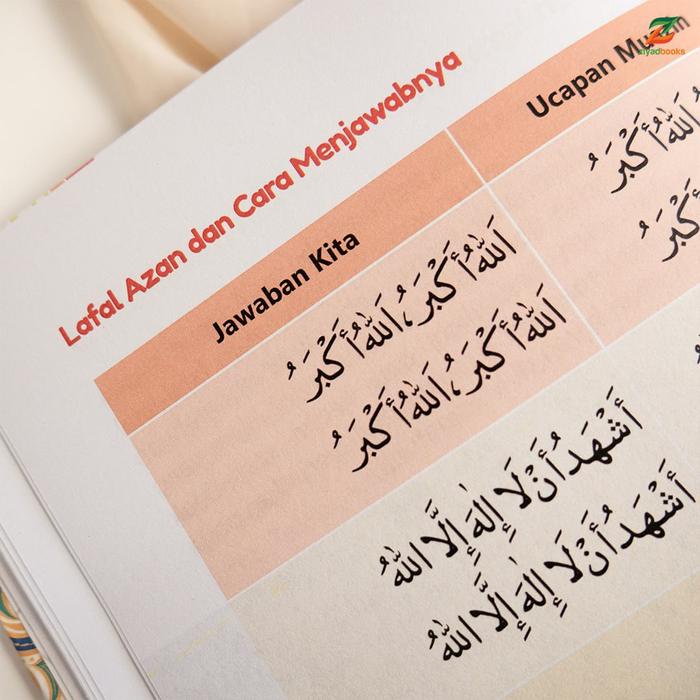 Lafal Azan dan Cara Menjawabnya
Jawaban Kita
Ucapan
اَللّٰهُ أَكْبَرُ، اَللّٰهُ أَكْبَرُ
اَللّٰهُ أَكْبَرُ، اَللّٰهُ أَكْبَرُ
أَشْهَدُ أَنْ لَا إِلٰهَ إِلَّا اللّٰهُ
أَشْهَدُ أَنْ لَا إِلٰهَ إِلَّا اللّٰهُ
اَللّٰهُ أَكْبَرُ
أَكْبَرُ
ziyadbooks